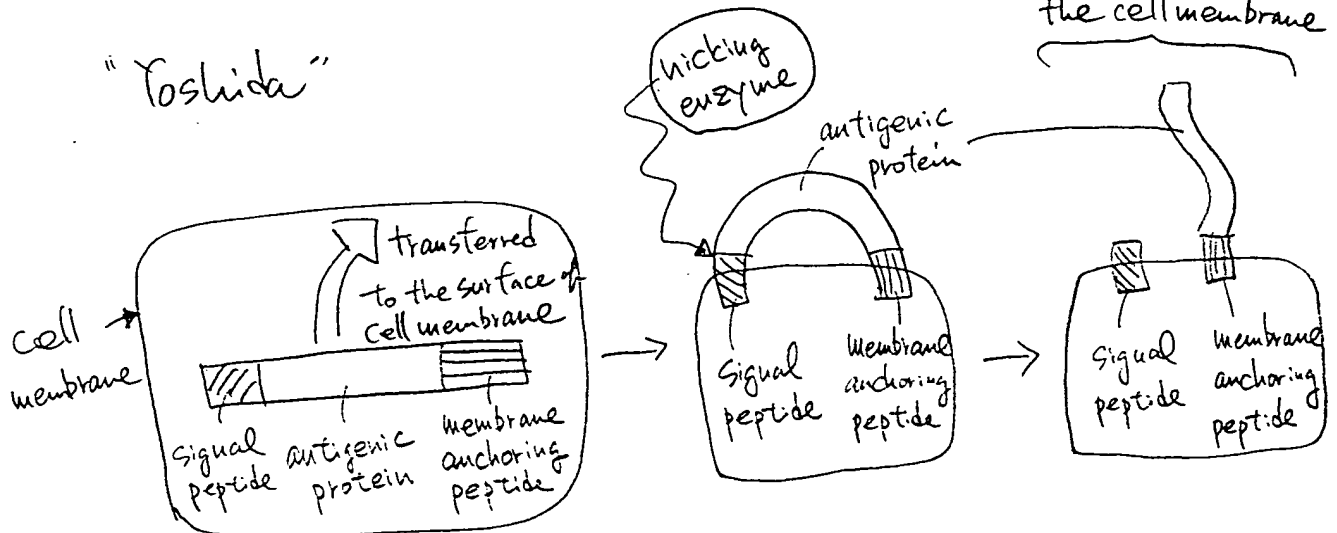 the cell membrane
"Yoshida"
nicking
enzyme
antigenic
protein
transferred
to the surface of
cell membrane
cell
membrane
signal
peptide
antigenic
protein
membrane
anchoring
peptide
signal
peptide
membrane
anchoring
peptide
signal
peptide
membrane
anchoring
peptide